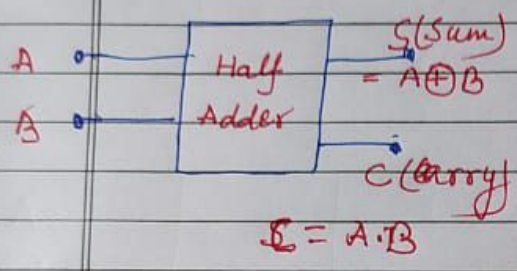 A
B
Half
Adder
S(Sum)
= A⊕B
C (Carry)
C = A.B